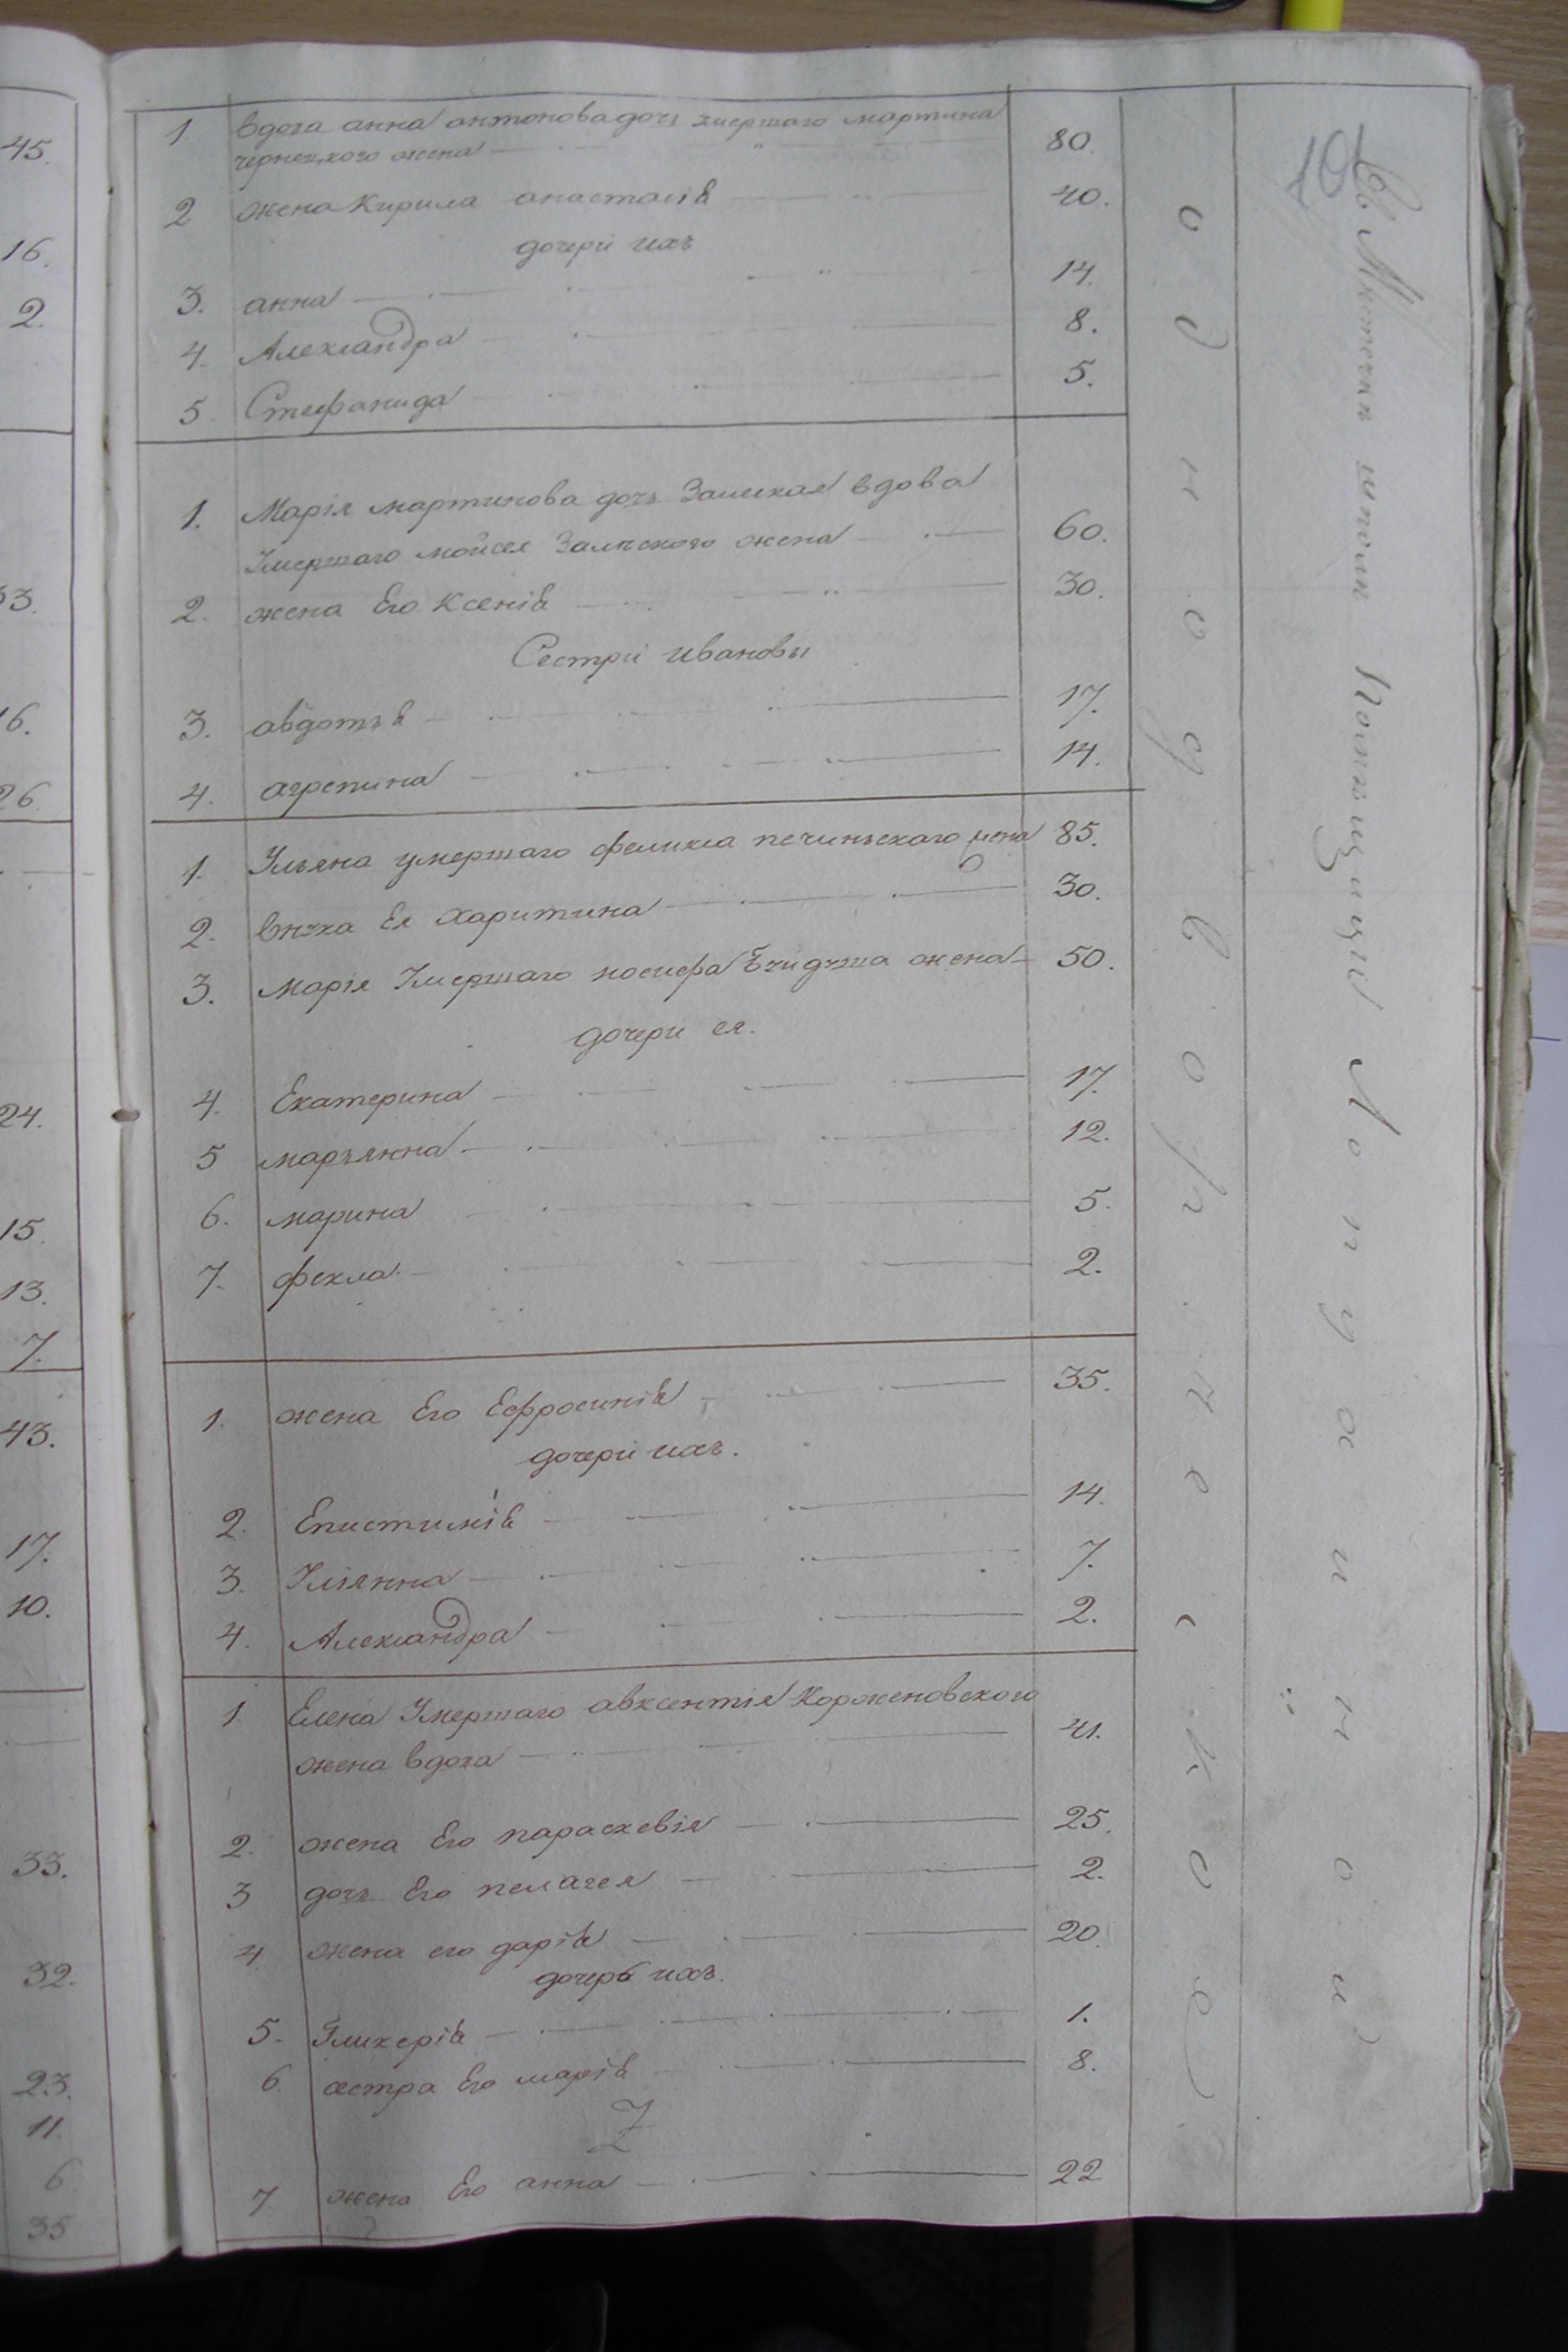 1. вдова анна антонова дочь умершаго мартина
чернецкого жена 80.
2 жена Кирила анастасія 40.
дочери ихъ
3. анна 14.
4. Александра 8.
5. Стефанида 5.
1. Марія мартинова дочь Залеская вдова
Умершаго мойсея Залеского жена 60.
2. жена Его Ксенія 30.
Сестри ивановы
3. авдотья 17.
4. агрепина 14.
1. Ульяна умершаго феликса печинского жена 85.
2. внука Ея Харитина 30.
3. марія Умершаго иосифа жена 50.
дочери ея.
4. Екатерина 17.
5 марьянна 12.
6. марина 5.
7. фекла 2.
1. жена Его Ефросинія 35.
дочери ихъ.
2. Епистимія 14.
3. Уліянна 7.
4. Александра 2.
1 Елена Умершаго авксентія Корженовского
жена вдова 41.
2. жена Его параскевія 25.
3 дочь Его пелагея 2.
4 жена его дарія 20.
дочерь ихъ.
5. Гликерія 1.
6. сестра Его марія 8.
7 жена Его анна 22
однодворческое
10
Въ Местечки шполи
45.
16.
2.
33.
16.
26.
24.
15.
13.
7.
43.
17.
10.
33.
32.
23.
11.
6
35